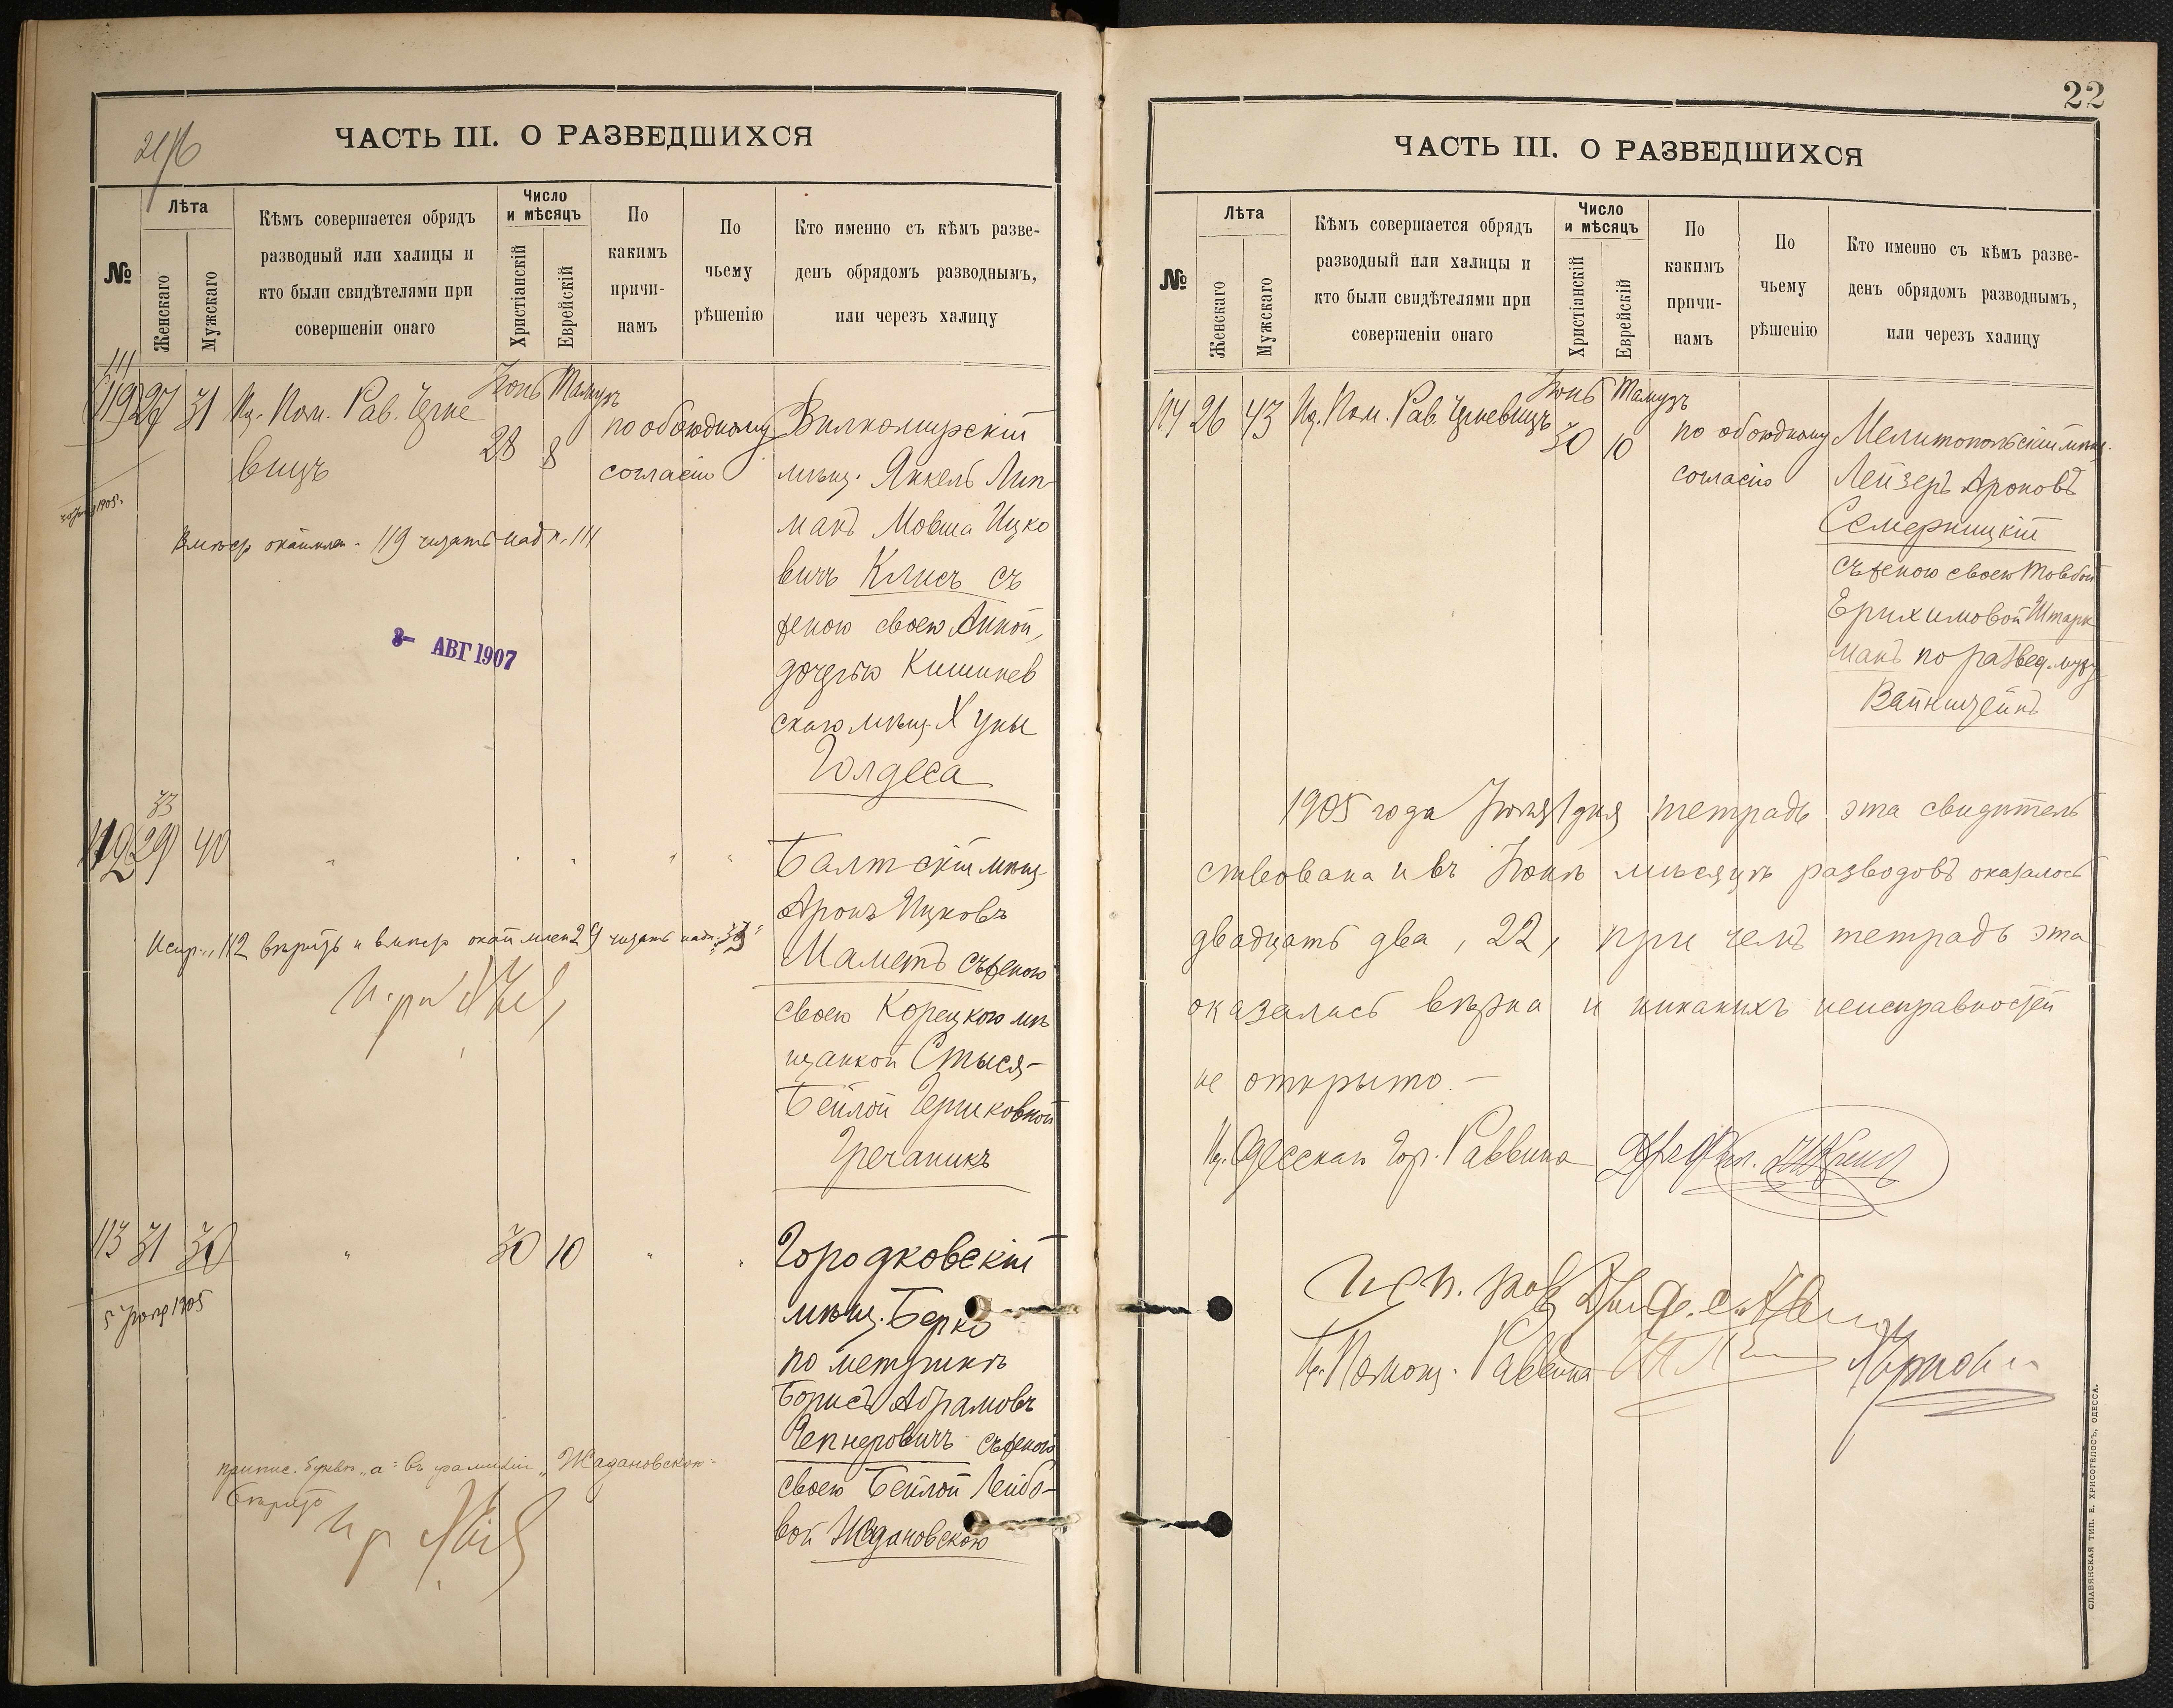 ЧАСТЬ III. О РАЗВЕДШИХСЯ
№
Лѣта
Женскаго
Мужскаго
Кѣмъ совершается обрядъ
разводный или халицы и
кто были свидѣтелями при
совершеніи онаго
Число
и мѣсяцъ
Христіанскій
Еврейскій
По
какимъ
причи-
намъ
По
чьему
рѣшенію
Кто именно съ кѣмъ разве-
денъ обрядомъ разводнымъ,
или черезъ халицу
111
119 27 31 Ид. Пом. Рав. Черне
вицъ
Іюнь Тамузъ
28 8
по обоюдному
согласію
Вилкомирскій
мѣщ. Янкель Лип-
манъ Мовша Ицко
вичъ Клисъ съ
женою своею Анной,
дочерью Кишинев
скаго мѣщ. Хуны
Голдеса
Вмѣсто окаймлен. 119 читать надп. 111
3- АВГ 1907
33
112 29 40 " " " " "
Балтскій мѣщ.
Аронъ Ицковъ
Маметъ съ женою
своею Корецкою мѣ
щанкой Стыся-
Бейлой Гершковной
Гречаникъ
Испр. 112 вѣрить и вмѣсто окаймлен 29 читать надп. "33"
113 31 30 " 30 10 " "
5 1905
Городковскій
мѣщ. Берко
по метрикѣ
Борисъ Абрамовъ
Чепнеровичъ съ женою
своею Бейлой Лейбо-
вой Жадановскою
припис. букв. "а" въ фамиліи "Жадановскою"
вѣрить
22
ЧАСТЬ III. О РАЗВЕДШИХСЯ
№
Лѣта
Женскаго
Мужскаго
Кѣмъ совершается обрядъ
разводный или халицы и
кто были свидѣтелями при
совершеніи онаго
Число
и мѣсяцъ
Христіанскій
Еврейскій
По
какимъ
причи-
намъ
По
чьему
рѣшенію
Кто именно съ кѣмъ разве-
денъ обрядомъ разводнымъ,
или черезъ халицу
114 26 43 Ид. Пом. Рав. Черневицъ
Іюнь Тамузъ
30 10
по обоюдному
согласію
Мелитопольскій мѣщ.
Лейзеръ Ароновъ
Семерницкій
съ женою своею Товбой
Ерихимовой Штарк
манъ по развед. мужу
Вайнштейнъ
1905 года Іюля 1 дня тетрадь эта свидѣтель
ствована и въ Іюнѣ мѣсяцѣ разводовъ оказалось
двадцать два, 22, при чемъ тетрадь эта
оказалась вѣрна и никакихъ неисправностей
не открыто.-
Ид. Одесскаго Гор. Раввина
И. Помощ. Раввина
СЛАВЯНСКАЯ ТИП. Е. ХРИСОГЕЛОСЪ, ОДЕССА.